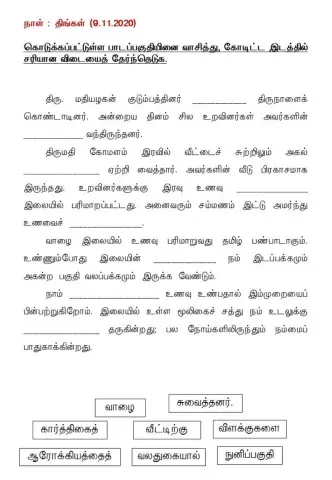 நாள் : திங்கள் (9.11.2020)
கொடுக்கப்பட்டுள்ள பாடப்பகுதியினை வாசித்து, கோடிட்ட இடத்தில்
சரியான விடையைத் தேர்ந்தெடுக.
திரு. மதியழகன் குடும்பத்தினர் ____________ திருநாளைக்
கொண்டாடினர். அன்றைய தினம் சில உறவினர்கள் அவர்களின்
____________ வந்திருந்தனர்.
திருமதி கோமளம் இரவில் வீட்டைச் சுற்றிலும் அகல்
____________ ஏற்றி வைத்தார். அவர்களின் வீடு பிரகாசமாக
இருந்தது. உறவினர்களுக்கு இரவு உணவு ____________
இலையில் பரிமாறப்பட்டது. அனைவரும் சம்மணம் இட்டு அமர்ந்து
உணவைச் ____________.
வாழை இலையில் உணவு பரிமாறுவது தமிழ் பண்பாடாகும்.
உண்ணும்போது இலையின் ____________ நம் இடப்பக்கமும்
அகன்ற பகுதி வலப்பக்கமும் இருக்க வேண்டும்.
நாம் ____________ உணவு உண்பதால் இம்முறையைப்
பின்பற்றுகிறோம். இலையில் உள்ள மூலிகைச் சத்து நம் உடலுக்கு
____________ தருகின்றது; பல நோய்களிலிருந்தும் நம்மைப்
பாதுகாக்கின்றது.
வாழை சுவைத்தனர்.
கார்த்திகைத் வீட்டிற்கு விளக்குகளை
ஆரோக்கியத்தைத் வலதுகையால் நுனிப்பகுதி